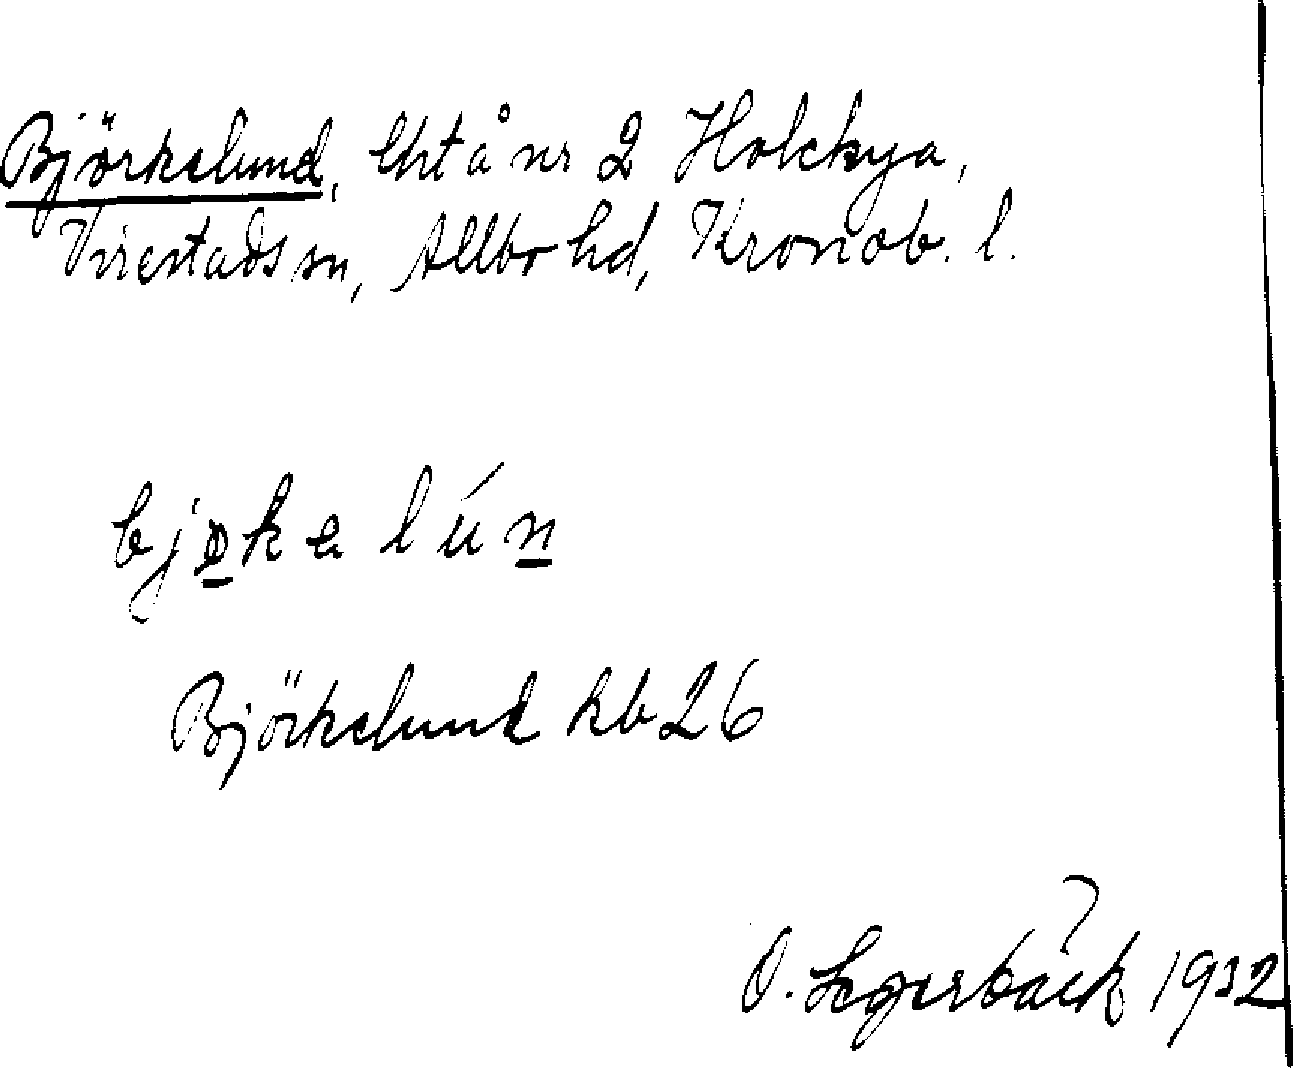 Björkelund, lht å nr 2 Holckya,
Virestads sn, Allbo hd, Kronob. l.
bjøkə lún
Björkelund kb 26
O. Segerbäck 1932